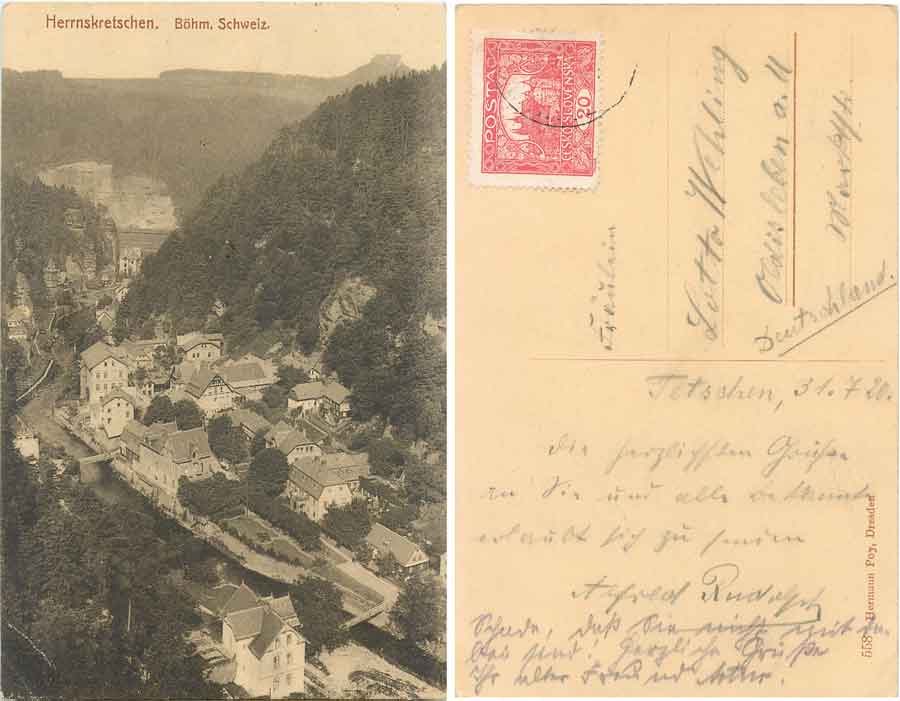 Herrnskretschen. Böhm. Schweiz.
POSTA
ČESKOSLOVENSKÁ
20
Fräulein
Lotte Wehling
Oldisleben a. U
Deutschland.
Tetschen, 31.7.20.
Die herzlichsten Grüße
an Sie und alle Bekannte
erlaubt sich zu senden
Rudolph
Schade, daß Sie nicht mit da-
bei sind! Herzliche Grüße
Ihr alter Freund
558 Hermann Poy, Dresden